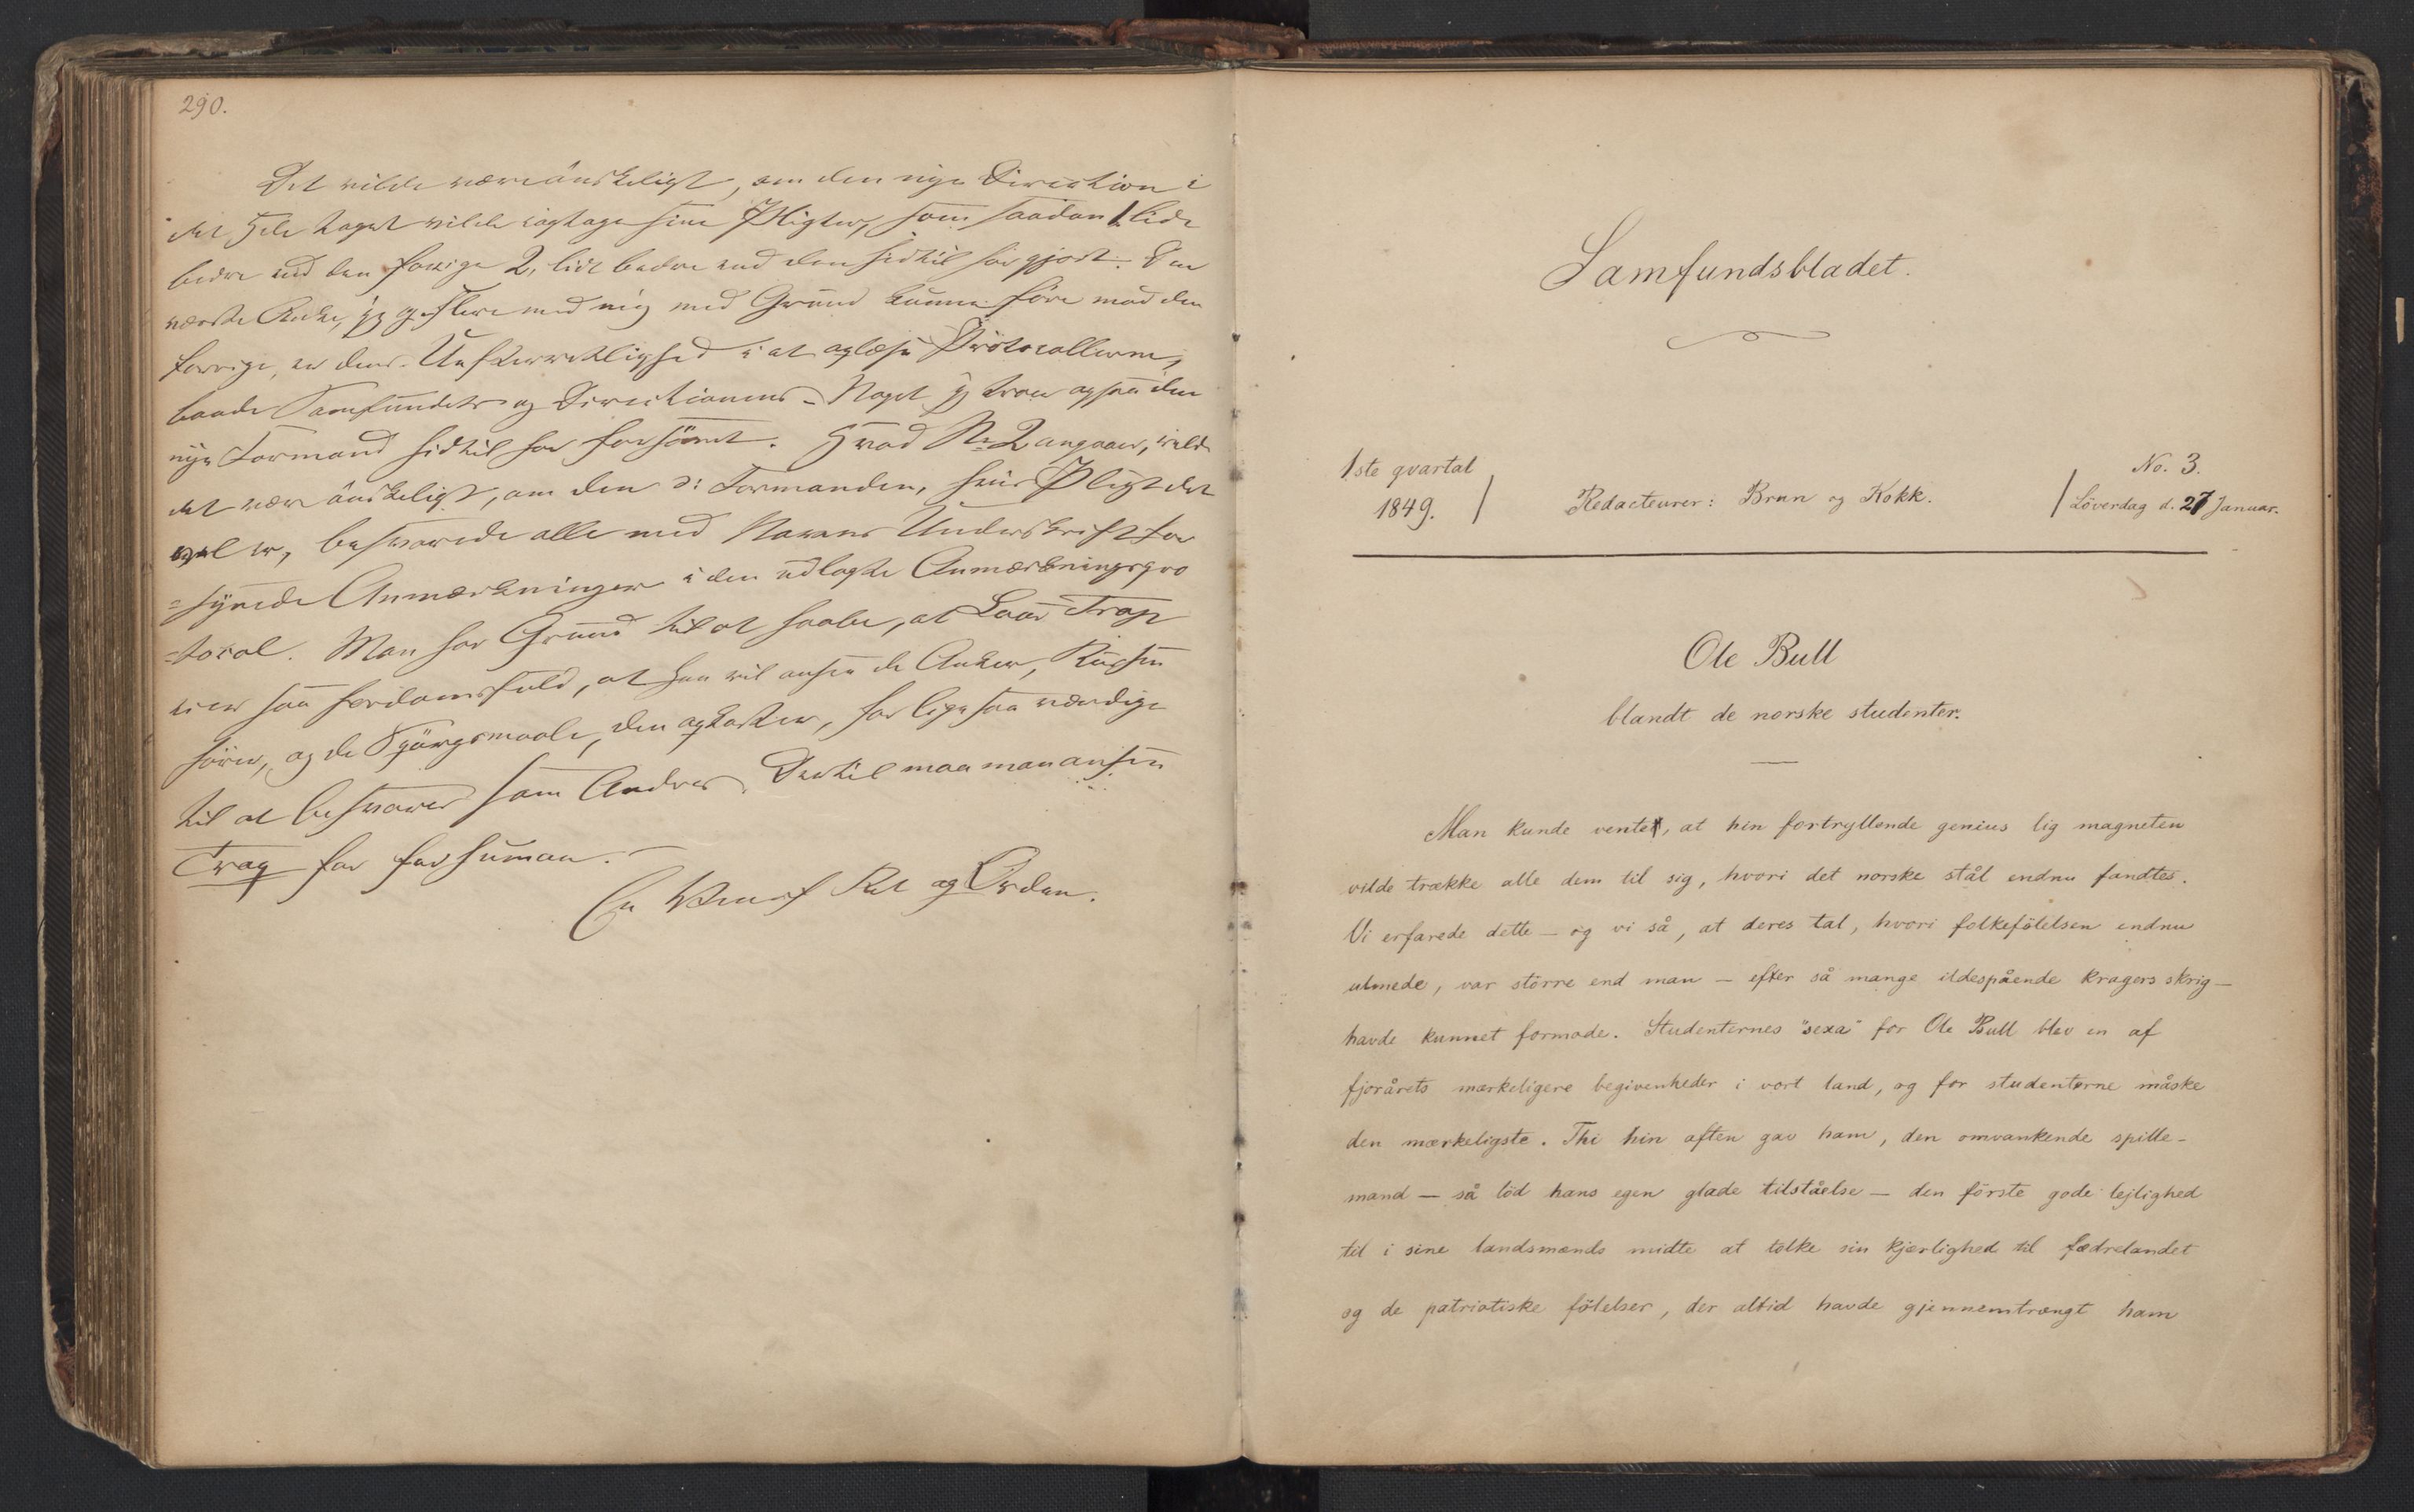 290.
Det vilde være önskeligt, om den nye Direction i
det Hele taget vilde iagttage sine Pligter, som saadan 1, lidt
bedre end den forrige 2, lidt bedre end den hidtil har gjort. Den
værste Anke, jeg og Flere med mig med Grund kunne före mod den
forrige, er dens Uefterrettlighed i at oplæse Protocollerne,
baade Samfundets og Directionens – Noget jeg troer ogsaa den
nye Formand hidtil har forsömt. Hvad No 2 angaaer, vilde
det være önskeligt, om den ɔ: Formanden, hvis Pligt det
vel er, besvarede alle med Navns Underskrift for
=synede Anmærkninger i den udlagte Anmærkningspro
=tocol. Man har Grund til at haabe, at
saa fordomsfuld, at han vil ansee de Anker,
og de Spörgsmaale, den opkaster, for ligesaa værdige
til at besvares som Andres. Dertil maa man ansee
Trap for for human. –
En Ven af Ret og Orden.
Samfundsbladet.
1ste qvartal
1849.
Redacteurer: Brun og Kokk.
No. 3.
Löverdag d. 27 Januar.
Ole Bull
blandt de norske studenter.
Man kunde ventet, at hin fortryllende genius lig magneten
vilde trække alle dem til sig, hvori det norske stål endnu fandtes.
Vi erfarede dette – og vi så, at deres tal, hvori folkefölelsen endnu
ulmede, var större end man – efter så mange ildespående kragers skrig –
havde kunnet formode. Studenternes "sexa" for Ole Bull blev en af
fjorårets mærkeligere begivenheder i vort land, og for studenterne måske
den mærkeligste. Thi hin aften gav ham, den omvankende spille-
mand – så löd hans egen glade tilståelse – den förste gode lejlighed
til i sine landsmænds midte at tolke sin kjærlighed til fædrelandet
og de patriotiske fölelser, der altid havde gjennemtrængt ham